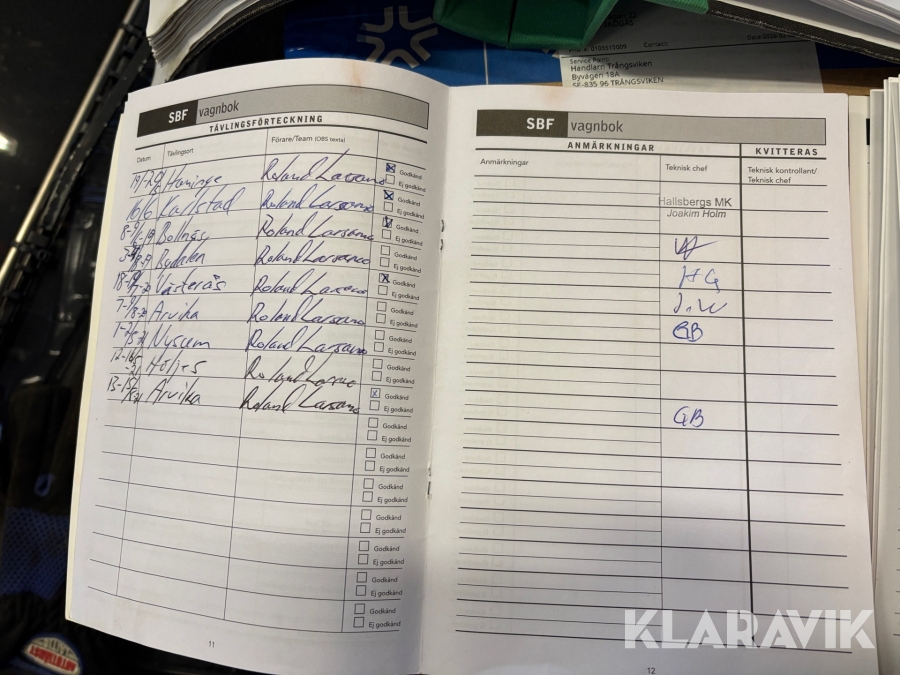 Handlarn Trångsviken
Byvägen 18A
SE-835 96 TRÅNGSVIKEN
SBF vagnbok
TÄVLINGSFÖRTECKNING
Datum Tävlingsort Förare/Team (OBS texta)
Haninge Roland Larsson Godkänd
Ej godkänd
16/6 Karlstad Roland Larsson Godkänd
Ej godkänd
Bollnäs Roland Larsson Godkänd
Ej godkänd
Roland Larsson Godkänd
Ej godkänd
Västerås Roland Larsson Godkänd
Ej godkänd
Arvika Roland Larsson Godkänd
Ej godkänd
Nysum Roland Larsson Godkänd
Ej godkänd
Höljes Roland Larsson Godkänd
Ej godkänd
Arvika Roland Larsson Godkänd
Ej godkänd
Godkänd
Ej godkänd
Godkänd
Ej godkänd
Godkänd
Ej godkänd
Godkänd
Ej godkänd
Godkänd
Ej godkänd
Godkänd
Ej godkänd
Godkänd
Ej godkänd
11
SBF vagnbok
ANMÄRKNINGAR KVITTERAS
Anmärkningar Teknisk chef Teknisk kontrollant/
Teknisk chef
Hallsbergs MK
Joakim Holm
HG
GB
GB
12
KLARAVIK